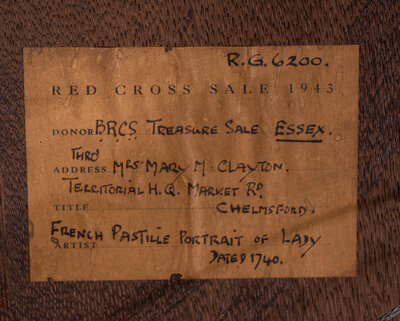 R.G.6200.
RED CROSS SALE 1943
DONOR B.R.C.S TREASURE SALE ESSEX.
THRO
ADDRESS MRS MARY M. CLAYTON.
TERRITORIAL H.Q. MARKET RD.
TITLE CHELMSFORD.
FRENCH PASTILLE PORTRAIT OF LADY
ARTIST DATED 1740.